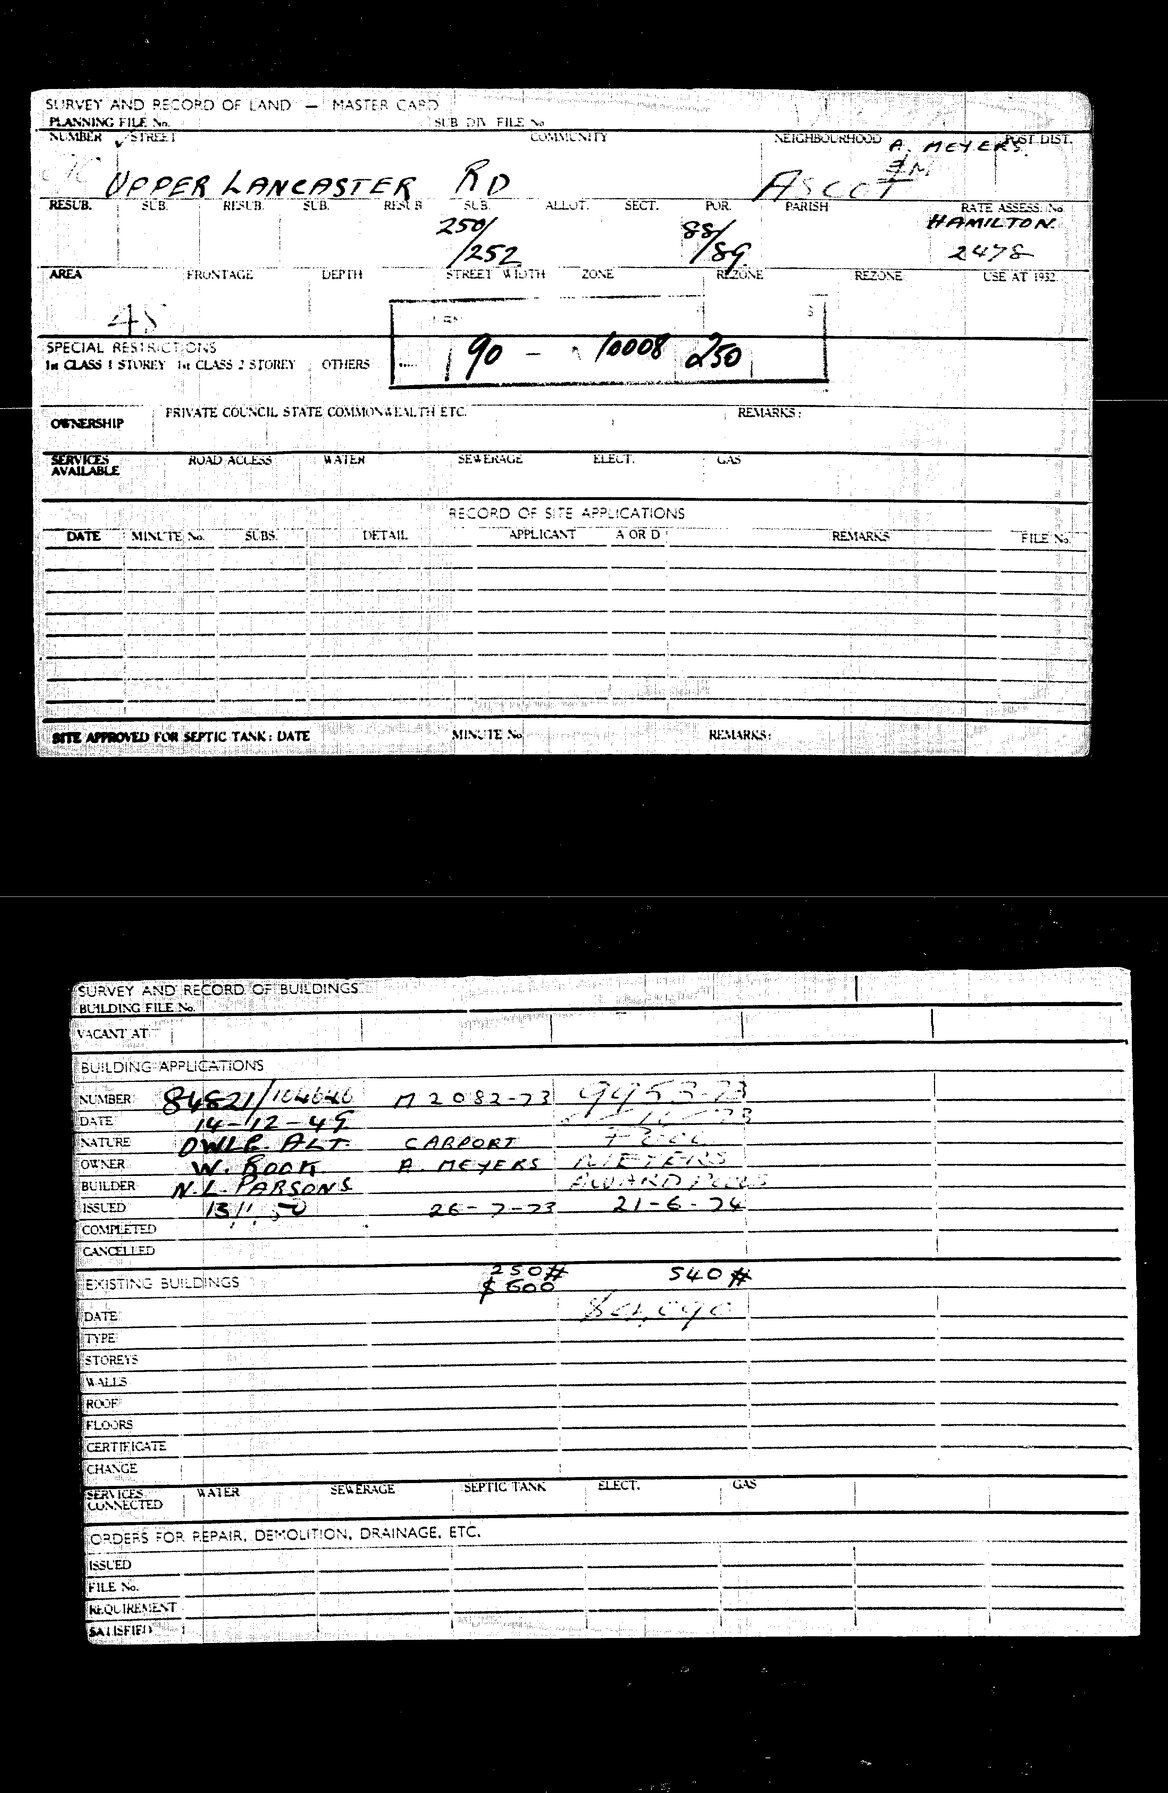 SURVEY AND RECORD OF LAND — MASTER CARD
PLANNING FILE No. SUB DIV FILE No
NUMBER STREET COMMUNITY NEIGHBOURHOOD POST DIST.
A. MEYERS.
UPPER LANCASTER RD ASCOT
RESUB. SUB. RESUB. SUB. RESUB SUB. ALLOT. SECT. POR. PARISH RATE ASSESS. No.
250/ 88/ HAMILTON.
/252 /89 2478
AREA FRONTAGE DEPTH STREET WIDTH ZONE REZONE REZONE USE AT 1952.
SPECIAL RESTRICTIONS
1st CLASS 1 STOREY 1st CLASS 2 STOREY OTHERS
90 - 10008 250
OWNERSHIP PRIVATE COUNCIL STATE COMMONWEALTH ETC. REMARKS:
SERVICES AVAILABLE ROAD ACCESS WATER SEWERAGE ELECT. GAS
RECORD OF SITE APPLICATIONS
DATE MINUTE No. SUBS. DETAIL APPLICANT A OR D REMARKS FILE No.
SITE APPROVED FOR SEPTIC TANK: DATE MINUTE No REMARKS:
SURVEY AND RECORD OF BUILDINGS
BUILDING FILE No.
VACANT AT
BUILDING APPLICATIONS
NUMBER 84821/ M2082-73 9953-73
DATE 14-12-49
NATURE DWLG. ALT. CARPORT
OWNER W. ROOK A. MEYERS MEYERS
BUILDER N.L. PARSONS
ISSUED 26-7-73 21-6-74
COMPLETED
CANCELLED
EXISTING BUILDINGS 250# 540#
$600
DATE
TYPE
STOREYS
WALLS
ROOF
FLOORS
CERTIFICATE
CHANGE
SERVICES CONNECTED WATER SEWERAGE SEPTIC TANK ELECT. GAS
ORDERS FOR REPAIR, DEMOLITION, DRAINAGE, ETC.
ISSUED
FILE No.
REQUIREMENT
SATISFIED